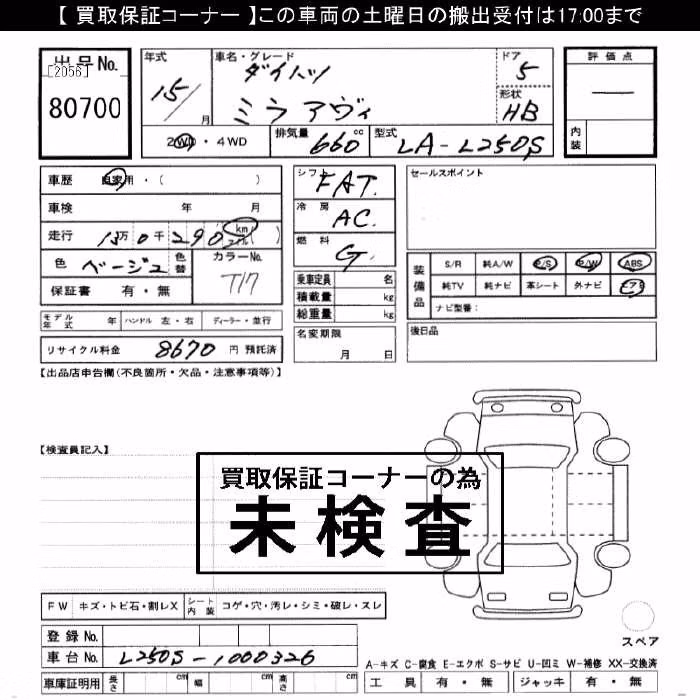 【 買取保証コーナー 】この車両の土曜日の搬出受付は17:00まで
出品No.
[2056]
80700
年式
15/
月
車名・グレード
ダイハツ
ミラアヴィ
ドア
5
形状
HB
評価点
―
内装
2WD・4WD
排気量 660 cc
型式 LA-L250S
車歴 自家用・( )
車検 年 月
走行 13万0千290 km マイル( )
色 ベージュ
色替
カラーNo.
T17
保証書 有・無
シフト FAT.
冷房 AC.
燃料 G.
乗車定員 名
積載量 kg
総重量 kg
セールスポイント
装備品
S/R 純A/W P/S P/W ABS
純TV 純ナビ 革シート 外ナビ エアB
ナビ型番:
モデル年式 年 ハンドル 左・右 ディーラー・並行
名変期限
月 日
後日品
リサイクル料金 8670 円 預託済
【出品店申告欄(不良箇所・欠品・注意事項等)】
【検査員記入】
買取保証コーナーの為
未検査
FW キズ・トビ石・割レX シート内装 コゲ・穴・汚レ・シミ・破レ・スレ
スペア
登録No.
車台No. L250S-1000326
A-キズ C-腐食 E-エクボ S-サビ U-凹ミ W-補修 XX-交換済
車庫証明用 長さ cm 幅 cm 高さ cm
工具 有・無 ジャッキ 有・無